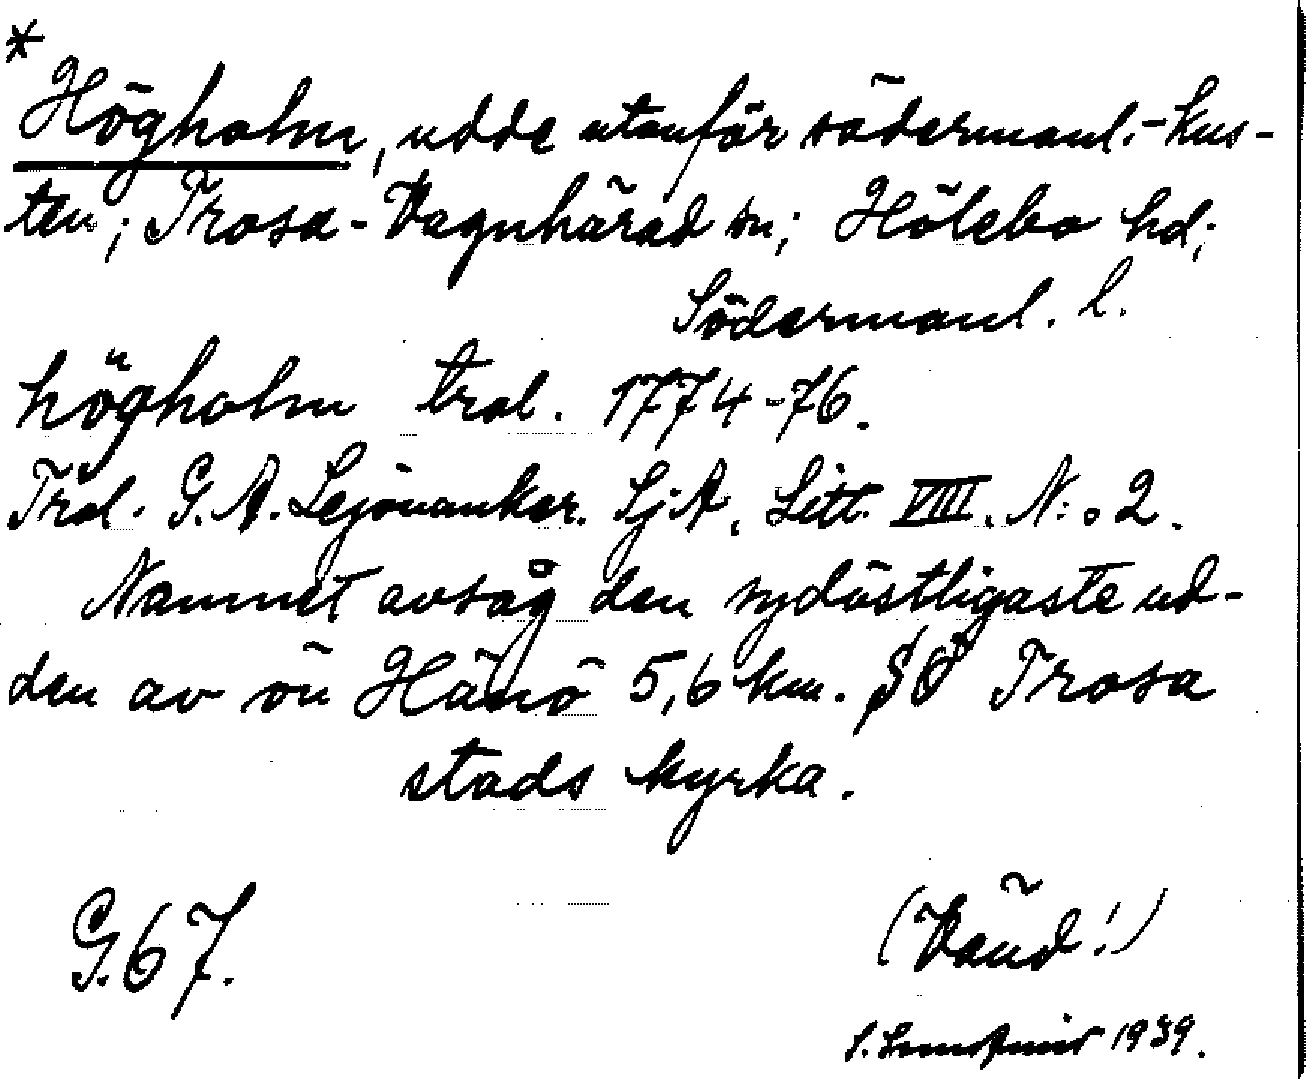 *
Högholm, udde utanför södermanl.-kus-
ten; Trosa-Vagnhärad sn; Hölebo hd;
Södermanl. l.
högholm tral. 1774-76.
Tral. G.A. Lejonanker. SjA, Litt. VIII. N:o 2.
Namnet avsåg den sydöstligaste ud-
den av ön Hänö 5,6 km. SÖ Trosa
stads kyrka.
G.67.
(Vänd!)
1939.